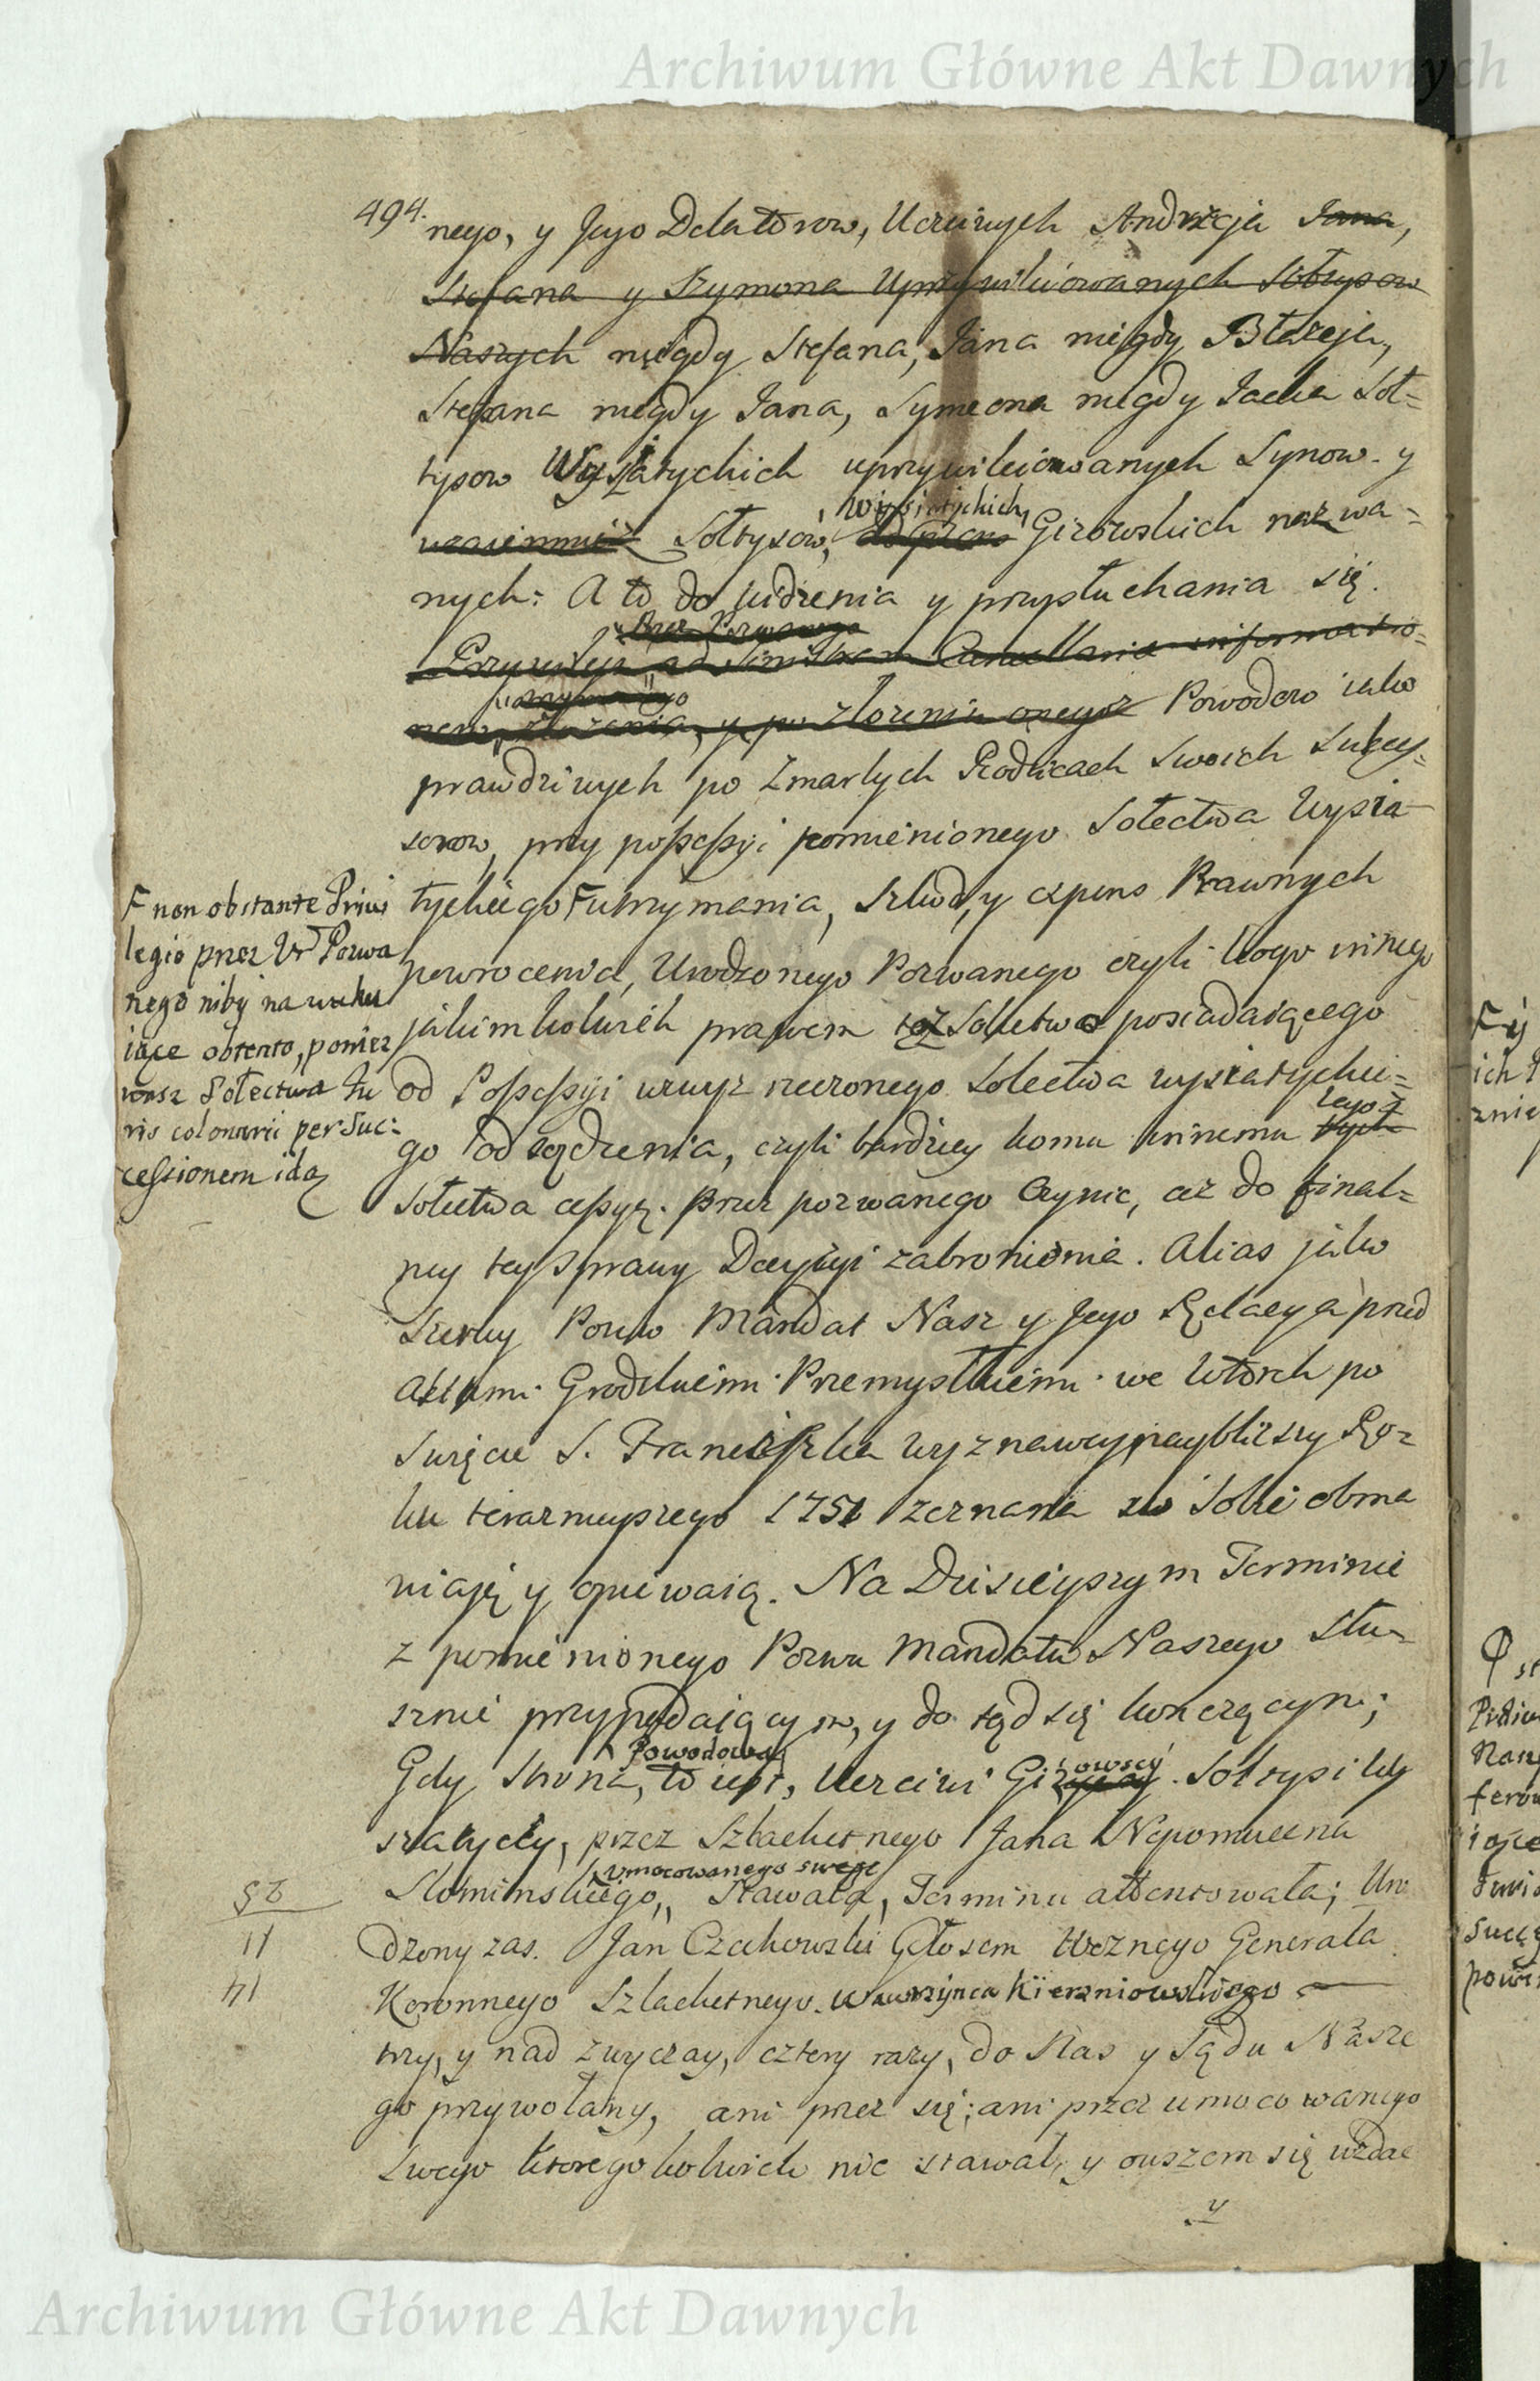 Archiwum Główne Akt Dawnych
494.
nego, y Jego Delatorow, Uczciwych Andrzeja Jana,
Stefana y Szymona Uprzywileiowanych Sołtysow
Naszych niegdy Stefana, Jana niegdy Błażeja,
Stefana niegdy Jana, Symeona niegdy Jacka Soł=
tysow Wysiatychich uprzywileiowanych Synow y
wzaiemnie Sołtysow, Wysiatychich, Gizowskich nazwa=
nych: A to do widzenia y przysłuchania się.
Przez Pozwanego
Przywileju ad Nostram Cancellariam informatio=
nem, złożenia, y po złożeniu onegoż Powodow iako
prawdziwych po Zmarłych Rodzicach Swoich Sukces=
sorow, przy possessyi pomienionego Sołectwa Wysia
tychiego F utrzymania, szkod, y expens Prawnych
powrocenia, Urodzonego Pozwanego czyli kogo innego
jakimkolwiek prawem toż Sołectwo posiadaiącego
od Possessyi wzwyż rzeczonego Sołectwa wysiatychie=
go odsądzenia, czyli bardziey komu innemu tych
tegoż
Sołectwa cessyą przez pozwanego czynic, aż do final=
ney tey sprawy Decyzyi zabronienia. Alias jako
Szerzey Pozew Mandat Nasz y Jego Relacya przed
Aktami Grodzkiemi Przemyskiemi we Wtorek po
Swięcie S. Franciszka wyznawcy naybliższy Ro=
ku teraznieyszego 1751 zeznana w Sobie obma
wiaią y opiewaią. Na Dzisieyszym Terminie
z pomienionego Pozwu Mandatu Naszego słu=
sznie przypadaiącym, y do tąd się kończącym;
Powodowa
Gdy Strona, to iest, Uczciwi Gizowscy Sołtysi Wy
siatyccy, przez Szlachetnego Jana Nepomucena
umocowanego swego
Słominskiego, Stawała, Terminu attentowała; Uro
dzony zas Jan Czechowski Głosem Woznego Generała
Koronnego Szlachetnego Wawrzynca Kierzniowskiego
trzy, y nad zwyczay, cztery razy, do Nas y Sądu Nasze
go przywołany, ani przez się, ani przez umocowanego
swego ktoregokolwiek nie stawał, y owszem się wzdac
y
F non obstante Privi
legio przez Ur Pozwa
nego niby na waku
iące obtento, poniez
wasz Sołectwa Iu
ris colonarii per Suc=
cessionem idą
52
11
14
Archiwum Główne Akt Dawnych